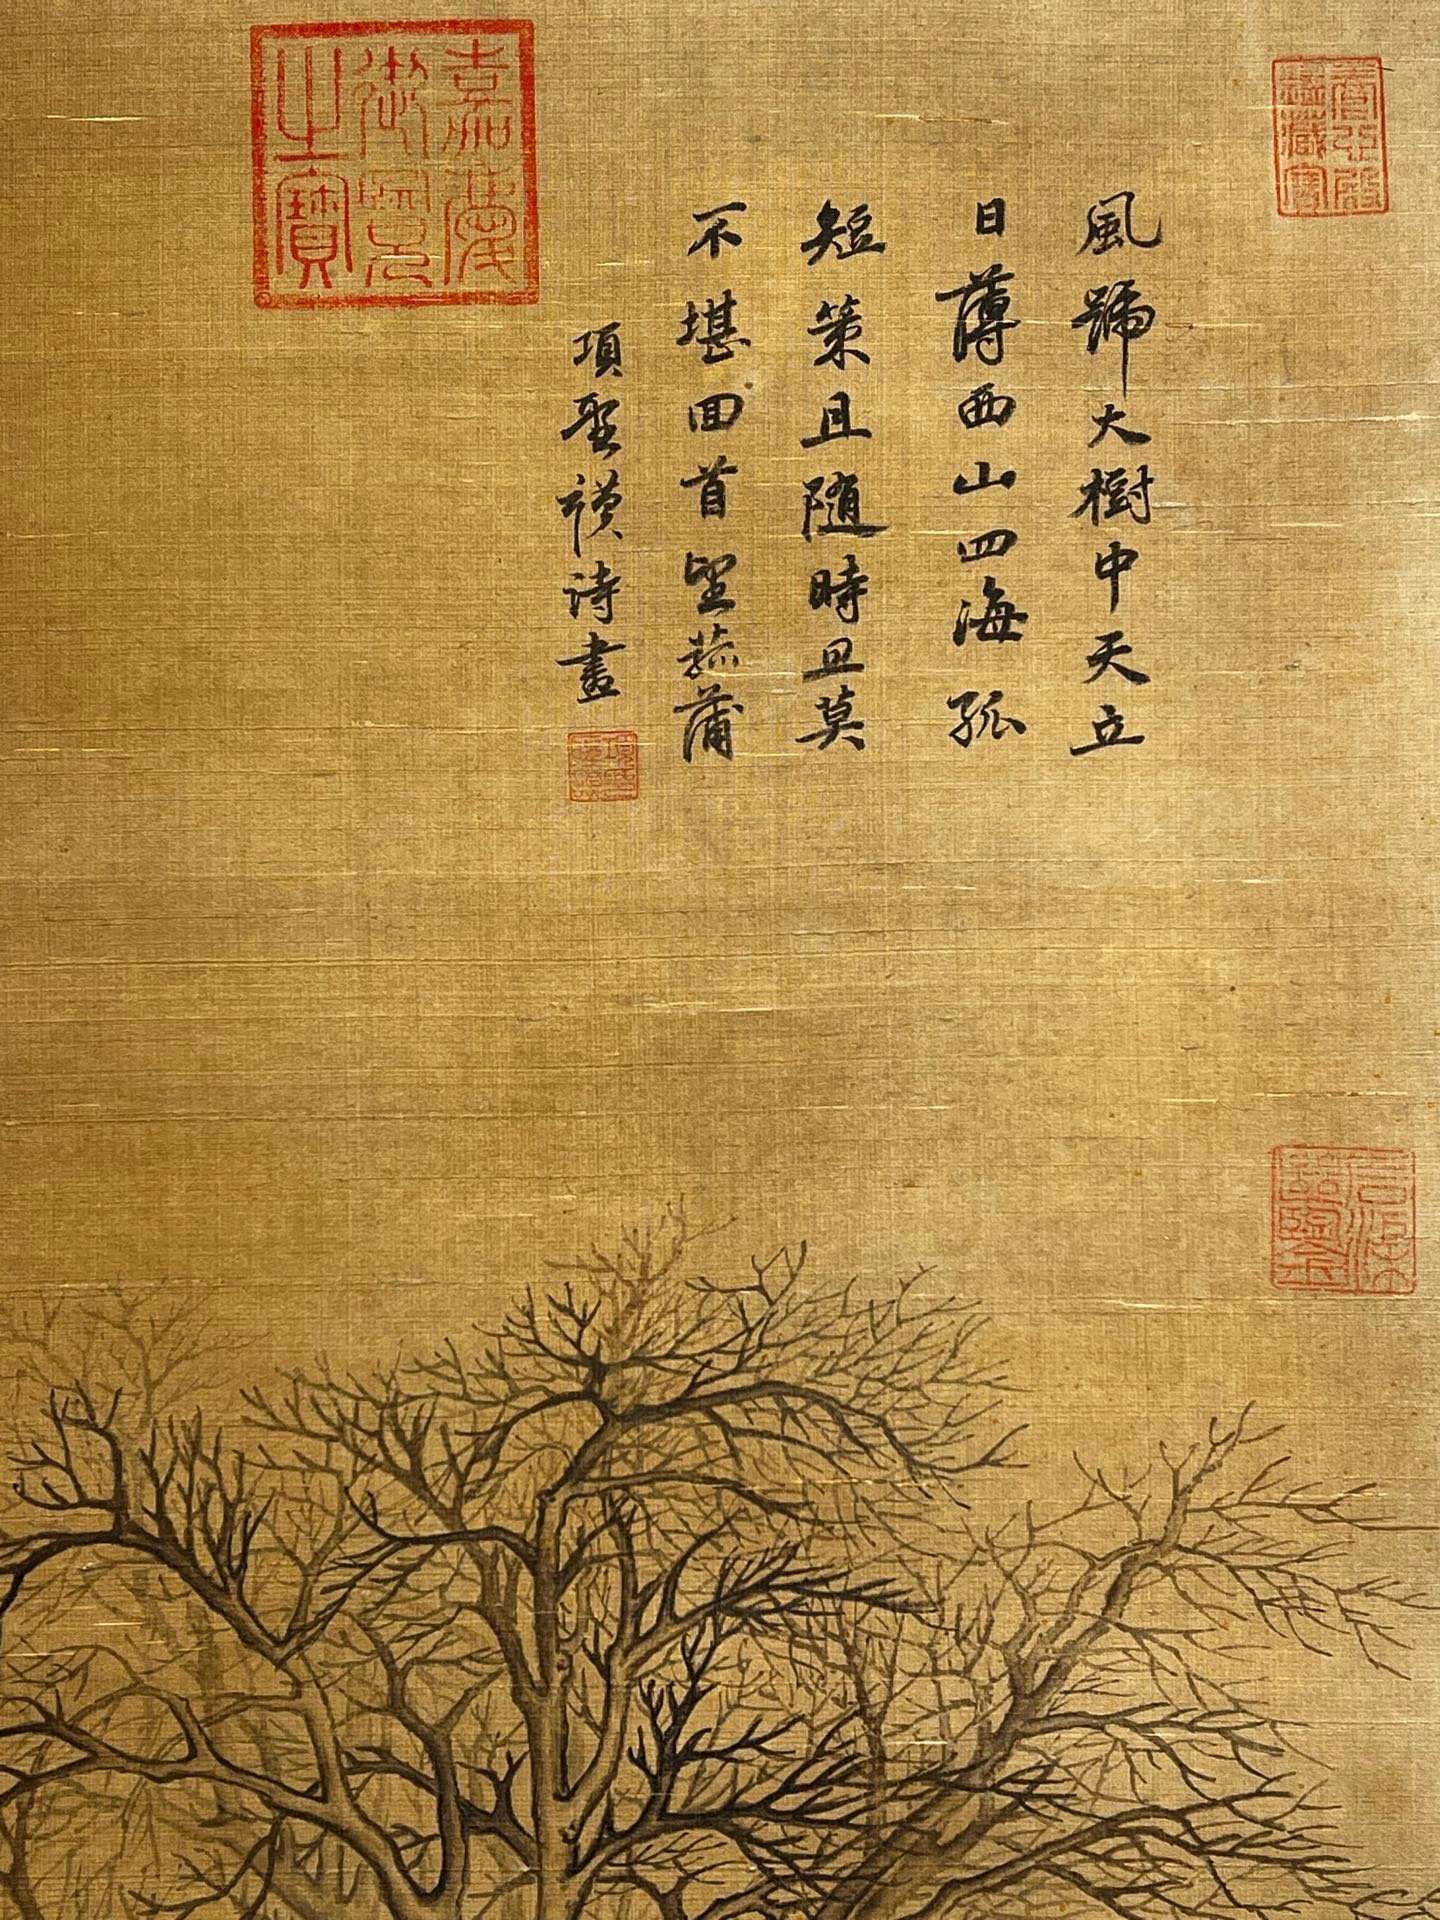 風號大樹中天立
日薄西山四海孤
短策且隨時旦莫
不堪回首望菰蒲
項聖謨詩畫
嘉慶御覽之寶
養心殿鑑藏寶